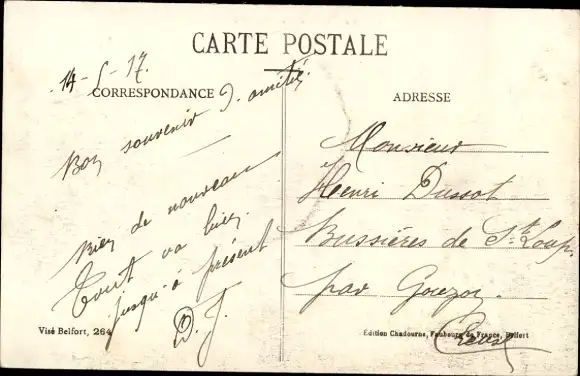 CARTE POSTALE
14-5-17.
CORRESPONDANCE
Bon souvenir d'amitié.
Rien de nouveau
Tout va bien
jusqu'à présent
D. J.
ADRESSE
Monsieur
Henri Dussot
Bussières de St Loup
par Gouzon.
Creuse
Visé Belfort, 264
Édition Chadourne, Faubourg de France, Belfort